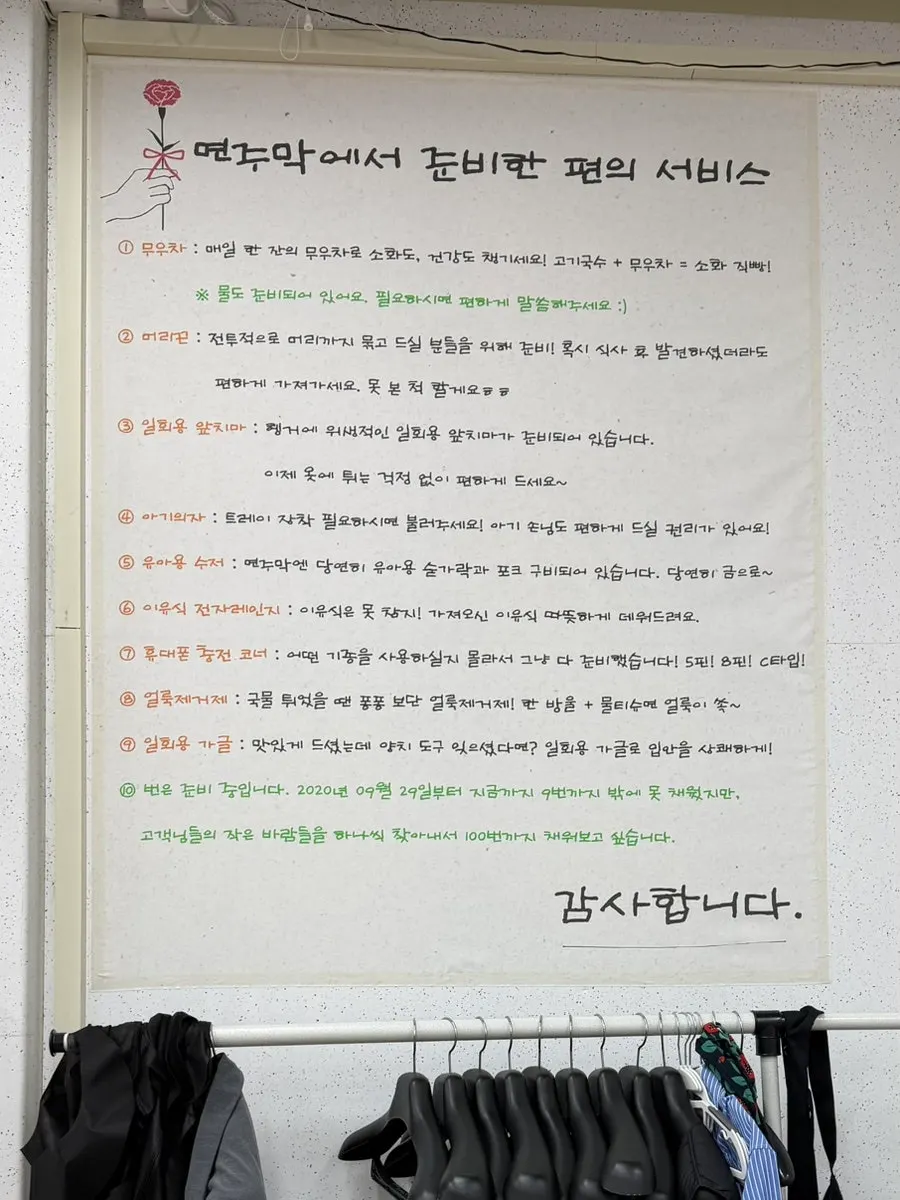 면주막에서 준비한 편의 서비스
① 무우차 : 매일 한 잔의 무우차로 소화도, 건강도 챙기세요! 고기국수 + 무우차 = 소화 직빵!
※ 물도 준비되어 있어요. 필요하시면 편하게 말씀해주세요 :)
② 머리끈 : 전투적으로 머리까지 묶고 드실 분들을 위해 준비! 혹시 식사 후 발견하셨더라도
편하게 가져가세요. 못 본 척 할게요ㅎㅎ
③ 일회용 앞치마 : 행거에 위생적인 일회용 앞치마가 준비되어 있습니다.
이제 옷에 튀는 걱정 없이 편하게 드세요~
④ 아기의자 : 트레이 장착 필요하시면 불러주세요! 아기 손님도 편하게 드실 권리가 있어요!
⑤ 유아용 수저 : 면주막엔 당연히 유아용 숟가락과 포크 구비되어 있습니다. 당연히 금으로~
⑥ 이유식 전자레인지 : 이유식은 못 참지! 가져오신 이유식 따뜻하게 데워드려요.
⑦ 휴대폰 충전 코너 : 어떤 기종을 사용하실지 몰라서 그냥 다 준비했습니다! 5핀! 8핀! C타입!
⑧ 얼룩제거제 : 국물 튀었을 땐 퐁퐁 보단 얼룩제거제! 한 방울 + 물티슈면 얼룩이 쏙~
⑨ 일회용 가글 : 맛있게 드셨는데 양치 도구 잊으셨다면? 일회용 가글로 입안을 상쾌하게!
⑩ 번은 준비 중입니다. 2020년 09월 29일부터 지금까지 9번까지 밖에 못 채웠지만,
고객님들의 작은 바람들을 하나씩 찾아내서 100번까지 채워보고 싶습니다.
감사합니다.